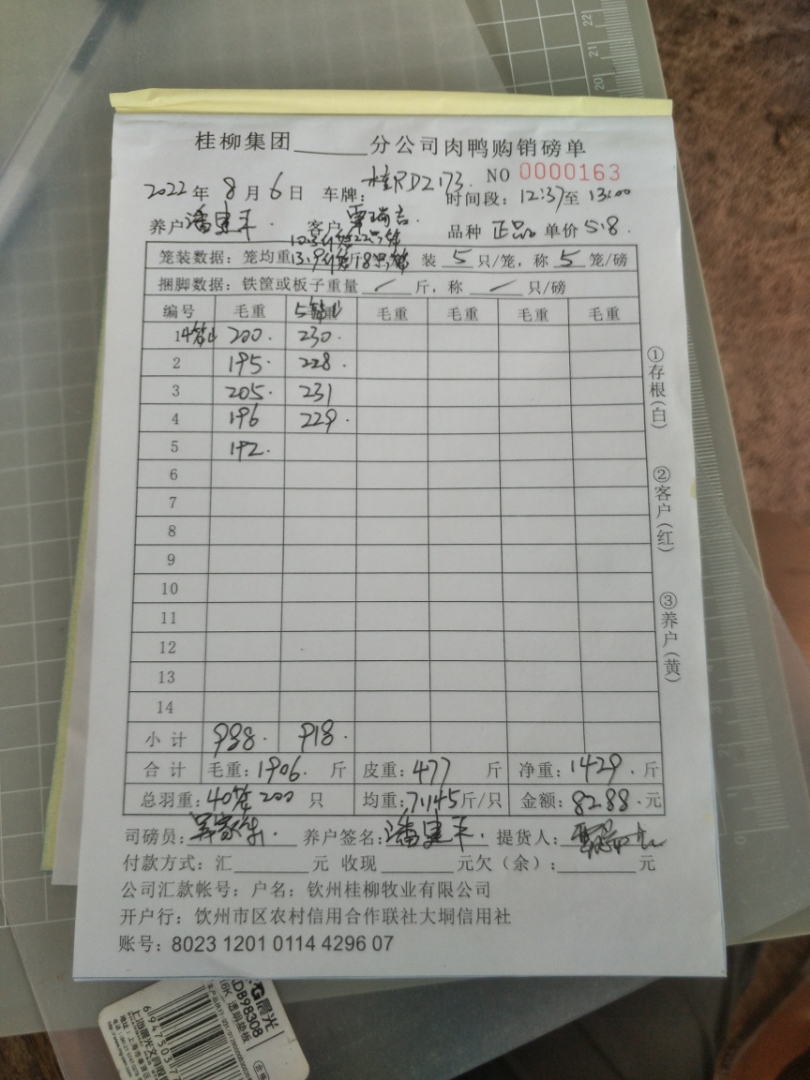 桂柳集团______分公司肉鸭购销磅单
NO 0000163
2022年8月6日 车牌:桂RD2173 时间段:12:37至13:00
养户 潘建平 客户 覃瑞吉 品种 正品 单价 5.8
10.3斤/笼22只笼
笼装数据:笼均重13.9斤/笼18只笼 装5只/笼,称5笼/磅
捆脚数据:铁筐或板子重量 / 斤,称 / 只/磅
编号 毛重 5笼 毛重 毛重 毛重 毛重
1 4笼 200. 230.
2 195. 228.
3 205. 231
4 196 229.
5 192.
6
7
8
9
10
11
12
13
14
小计 988. 918.
合计 毛重:1906.斤 皮重:477 斤 净重:1429.斤
总羽重:40笼200 只 均重:7.145斤/只 金额:8288.元
司磅员: 养户签名:潘建平. 提货人:
付款方式:汇______元 收现______元欠(余):______元
公司汇款帐号:户名:钦州桂柳牧业有限公司
开户行:饮州市区农村信用合作联社大垌信用社
账号:8023 1201 0114 4296 07
①存根(白)
②客户(红)
③养户(黄)
22
21
20
晨光
ADB98308
16K 透明垫板
6 947503 7